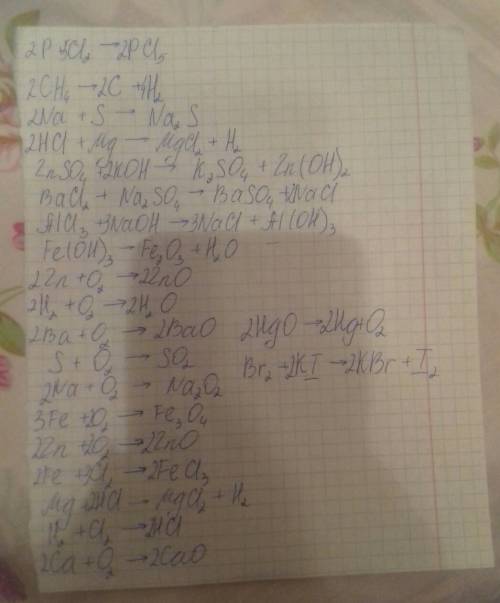 2P + 5Cl₂ → 2PCl₅
2CH₄ → 2C + 4H₂
2Na + S → Na₂S
2HCl + Mg — MgCl₂ + H₂
ZnSO₄ + 2KOH → K₂SO₄ + Zn(OH)₂
BaCl₂ + Na₂SO₄ → BaSO₄ + 2NaCl
AlCl₃ + 3NaOH → 3NaCl + Al(OH)₃
Fe(OH)₃ — Fe₂O₃ + H₂O
2Zn + O₂ → 2ZnO
2H₂ + O₂ → 2H₂O
2Ba + O₂ → 2BaO
S + O₂ → SO₂
2Na + O₂ → Na₂O₂
3Fe + 2O₂ → Fe₃O₄
2Zn + 2O₂ → 2ZnO
2Fe + 3Cl₂ → 2FeCl₃
Mg + 2HCl — MgCl₂ + H₂
H₂ + Cl₂ → 2HCl
2Ca + O₂ → 2CaO
2HgO → 2Hg + O₂
Br₂ + 2KI → 2KBr + I₂